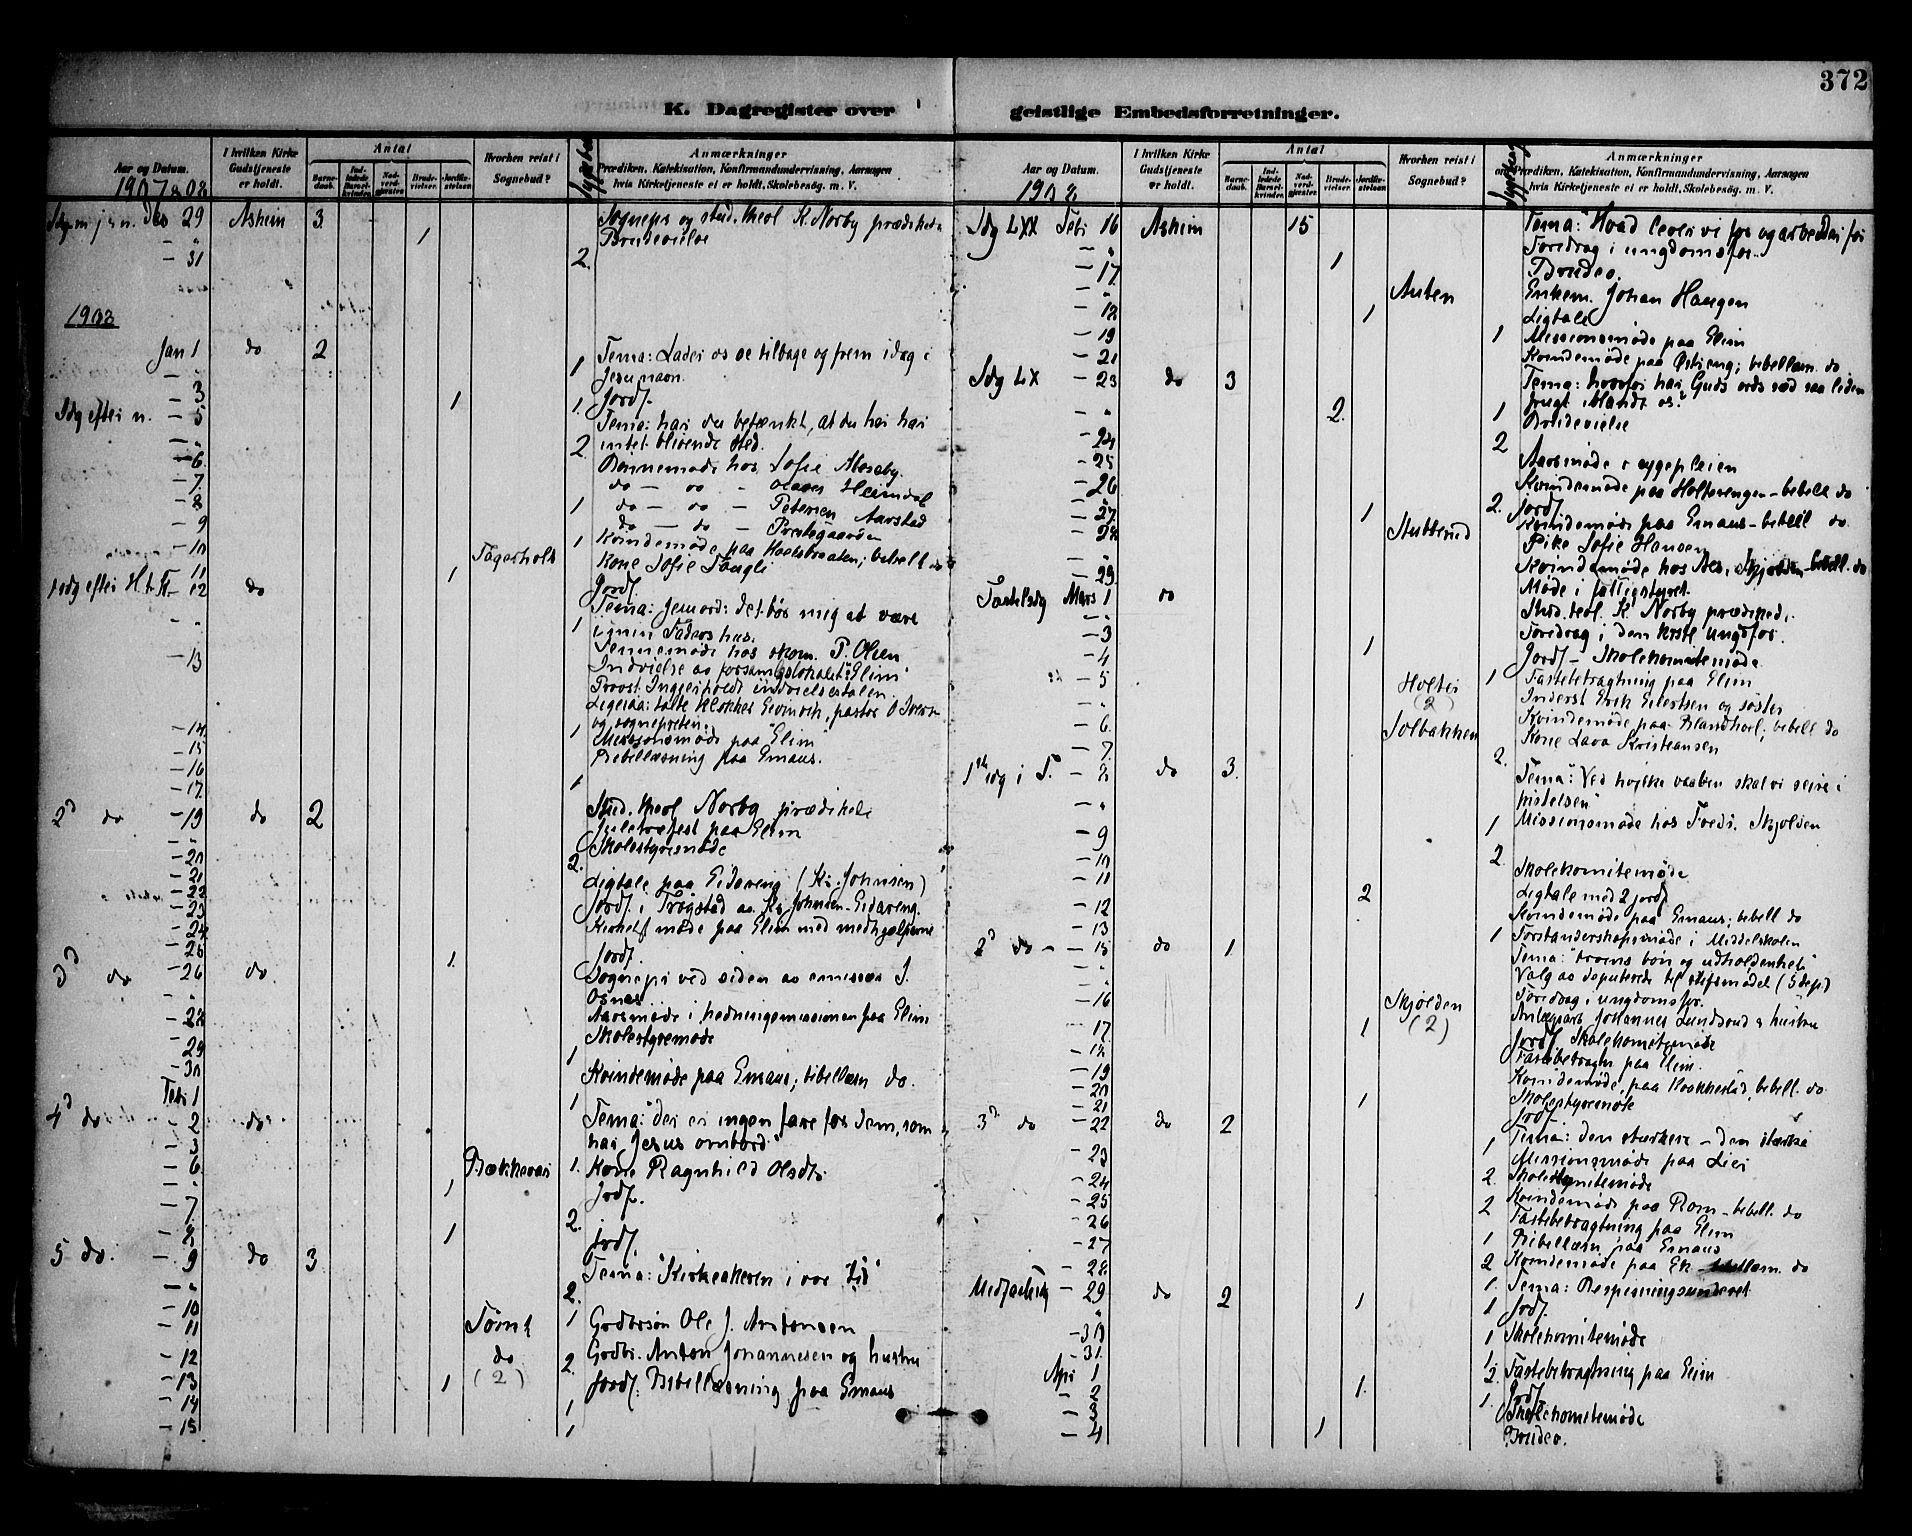 372
K. Dagregister over
geistlige Embedsforretninger.
Aar og Datum.
1907 & 08
I hvilken Kirke Gudstjeneste er holdt.
Antal
Barnedaab.
Indledede Barselkvinder.
Nadverdgjæster.
Brudevielser.
Jordfæstelser.
Hvorhen reist i Sognebud?
Anmærkninger
om Prædiken, Katekisation, Konfirmandundervisning, Aarsagen
hvis Kirketjeneste ei er holdt, Skolebesøg. m. V.
Des 29 Askim 3 Sognepr og stud. theol K. Norby prædikede
" 1 Brudevielse
- 31 2
1908
Jan 1 do 2 Tema: Lader os se tilbage og frem idag i
1 Jesu navn
- 3 1 Jordf.
Sdg efter n. - 5 1. Tema: har du betænkt, at du her har
2 intet blivende sted.
- 6 Bønnemøde hos Sofie Moseby.
- 7 do - do - Heimdal
- 8 1 do - do - Petersen Aarstad
- 9 do - do - Prestegaarden
- 10 Fagerholt 1 Kvindemøde paa ; bebell do
- 11 1 Kone Sofie
1 sdg efter H.t.K. - 12 do Jordf.
Tema: Jesu ord: det bør mig at være
1 i min Faders hus.
- 13 hos skom. P. Olsen
Indvielse av forsamlgslokalet "Elim"
Provst indvielsestalen
Ligesaa talte klokker , pastor O
og sognepresten.
- 14 1 Missionsmøde paa "Elim"
- 15 Bibellæsning paa Emaus.
- 16
- 17 1
2d do - 19 do 2 Stud. theol Norby prædikede
" Juletræfest paa Elim
- 20 Skolestyremøde
- 21 2
- 22 Ligtale paa Eidareng (Kr. Johnsen)
- 23 Jordf. i Trøgstad av Kr Johnsen-Eidareng.
- 24 møde paa Elim med medhjælperne
- 25 1. Jordf.
3d do - 26 do Sognepr ved siden av emissær J.
" Osnes
- 28 Aarsmøde i hedningemissionen paa Elim
- 29 Skolestyremøde
- 30 1
Febr 1 Kvindemøde paa Emaus; bibellæsn do.
4d do - 2 do 1 Tema: "der er ingen fare for dem, som
- 3 har Jesus ombord"
- 6 1. Kone Ragnhild Olsdtr
" 1 Jordf.
- 7 2.
- 8 1 Jordf.
5 do. - 9 do 3 Tema: "Kirkeakeren i vor tid"
" 2.
- 10 Tømt 1 Godbrsøn Ole J. Antonsen
- 11
- 12 do 2 Godbr. Anton Johannesen og hustru
- 13 (2) 1 Jordf. Bibellæsning paa Emaus
- 14 1
- 15 1
Aar og Datum.
1908
I hvilken Kirke Gudstjeneste er holdt.
Antal
Barnedaab.
Indledede Barselkvinder.
Nadverdgjæster.
Brudevielser.
Jordfæstelser.
Hvorhen reist i Sognebud?
Anmærkninger
om Prædiken, Katekisation, Konfirmandundervisning, Aarsagen
hvis Kirketjeneste ei er holdt, Skolebesøg. m. V.
Sdg LXX Febr 16 Askim 15 Tema: "Hvad lever vi for og arbeider for
" Foredrag i ungdomsfor.
- 17 1 Brudev.
" Auten Enkem. Johan Haugen
- 18 1 Ligtale
- 19 1 Missionsmøde paa Elim
- 21 Kvindemøde paa Østreng; bebellæsn. do
Sdg LX - 23 do 3 Tema: hvorfor har Guds ords sæd saa liden
frugt iblandt os?
" 2. 1 Brudevielse
- 24 2
- 25 Aarsmøde i sygepleien
- 26 Kvindemøde paa Holterengen - bebell do
- 27 1 2. Jordf
- 28 Stubberud Kvindemøde paa Emaus - bebell do.
Pike Sofie Hansen
- 29 Kvindemøde hos - bebell. do
Møde i fattigstyret
Fastelsdg Mars 1 do Stud. teol. K Norby prædiked.
- 3 Foredrag i den krstl ungdfor.
- 4 1 Jordf - Skolekomitemøde
- 5 Holter 1 Fastebetragtning paa Elim
" (2) Inderst Erik Eilertsen og søster
- 6 Solbakken Kvindemøde paa ; bebell do
- 7 Kone Lava Kristiansen
2.
1ste sdg i F. - 8 do 3. Tema: "Ved hvilke vaaben skal vi seire i
fristelsen"
- 9 1 Missionsmøde hos Fredr. Skjolden
- 10 2.
- 11 Skolekomitemøde
2 Ligtale med 2 jordf
- 12 Kvindemøde paa Emaus; bebell do
- 13 1 Forstanderskapsmøde i Middelskolen
2d do - - 15 do 1. Tema: "troens bøn og udholdenhet"
" Valg av deputerede til stifsmødet (5 dep.)
- 16 Skjolden Foredrag i ungdomsfor.
(2) Johannes Lundsrud & hustru
- 17 1 Jordf. Skolekomitemøde
- 18 Fastebetragtn paa Elim.
- 19 Kvindemøde paa , bebell. do
- 20 Skolestyremøte
- 21 1 Jordf
3d do - 22 do 2 Tema: den sterkere - den sterke
- 23 1 Missionsmøde paa Lier
- 24 2. Skolekomitemøde
- 25 2 Kvindemøde paa Rom - bebell. do
- 26 Fastebetragtning paa Elim
- 27 1 Bibellæsn paa Emaus
- 28 2 Kvindemøde paa Ek - do
Midfastsdg - 29 do 2 1. Tema: Bespisningsunderet
" 1 1 Jordf.
- 30 1 Skolekomitemøde
- 31
Apr 1 1 Fastebetragtning paa Elim
- 2 1. 2 Jordf
- 3 1. Skolekomitemøde
- 4 1 Brudev.